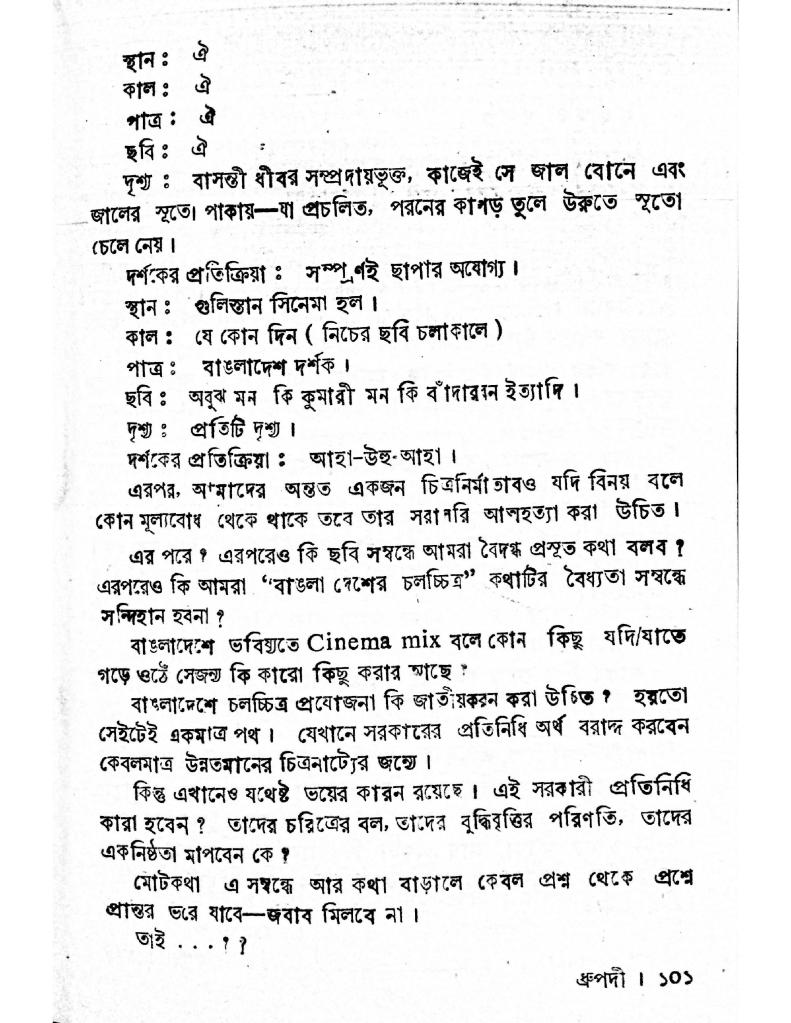 স্থান : ঐ
কাল : ঐ
পাত্র : ঐ
ছবি : ঐ
দৃশ্য : বাসন্তী ধীবর সম্প্রদায়ভুক্ত, কাজেই সে জাল বোনে এবং
জালের সূতো পাকায়—যা প্রচলিত, পরনের কাপড় তুলে উরুতে সূতো
চেলে নেয়।
দর্শকের প্রতিক্রিয়া : সম্পূর্ণই ছাপার অযোগ্য।
স্থান : গুলিস্তান সিনেমা হল।
কাল : যে কোন দিন ( নিচের ছবি চলাকালে )
পাত্র : বাঙলাদেশ দর্শক।
ছবি : অবুঝ মন কি কুমারী মন কি বাঁদারান ইত্যাদি।
দৃশ্য : প্রতিটি দৃশ্য।
দর্শকের প্রতিক্রিয়া : আহা-উহু-আহা।
এরপর, আমাদের অন্তত একজন চিত্রনির্মাতারও যদি বিনয় বলে
কোন মূল্যবোধ থেকে থাকে তবে তার সরাসরি আত্মহত্যা করা উচিত।
এর পরে ? এরপরেও কি ছবি সম্বন্ধে আমরা বৈদগ্ধ প্রসূত কথা বলব ?
এরপরেও কি আমরা “বাঙলা দেশের চলচ্চিত্র” কথাটির বৈধ্যতা সম্বন্ধে
সন্দিহান হবনা ?
বাঙলাদেশে ভবিষ্যতে Cinema mix বলে কোন কিছু যদি/যাতে
গড়ে ওঠে সেজন্য কি কারো কিছু করার আছে ?
বাঙলাদেশে চলচ্চিত্র প্রযোজনা কি জাতীয়করন করা উচিত ? হয়তো
সেইটেই একমাত্র পথ। যেখানে সরকারের প্রতিনিধি অর্থ বরাদ্দ করবেন
কেবলমাত্র উন্নতমানের চিত্রনাট্যের জন্যে।
কিন্তু এখানেও যথেষ্ট ভয়ের কারন রয়েছে। এই সরকারী প্রতিনিধি
কারা হবেন ? তাদের চরিত্রের বল, তাদের বুদ্ধিবৃত্তির পরিণতি, তাদের
একনিষ্ঠতা মাপবেন কে ?
মোটকথা এ সম্বন্ধে আর কথা বাড়ালে কেবল প্রশ্ন থেকে প্রশ্নে
প্রান্তর ভরে যাবে—জবাব মিলবে না।
তাই . . . ? ?
ধ্রুপদী । ১০১